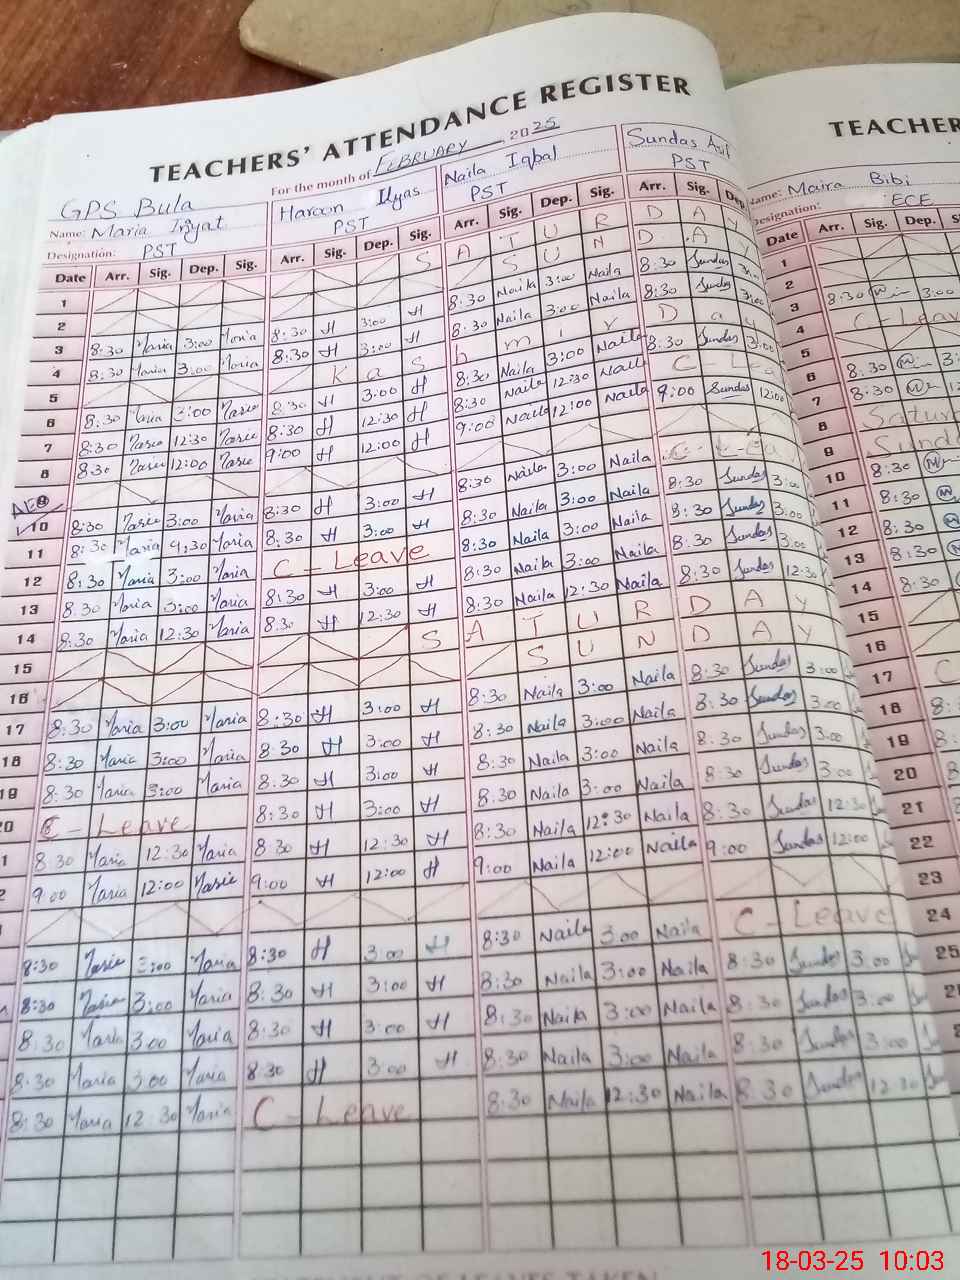 TEACHERS' ATTENDANCE REGISTER
For the month of FEBRUARY 2025
GPS Bula
Name: Maria
Haroon Ilyas
Naila Iqbal
Sundas
Designation: PST
PST
PST
PST
Date Arr. Sig. Dep. Sig. Arr. Sig. Dep. Sig. Arr. Sig. Dep. Sig. Arr. Sig. Dep.
1 SATURDAY
2 SUNDAY
3 8:30 Maria 3:00 Maria 8:30 H 3:00 H 8:30 Naila 3:00 Naila 8:30 Sundas 3:00
4 8:30 Maria 3:00 Maria 8:30 H 3:00 H 8:30 Naila 3:00 Naila 8:30 Sundas 3:00
5 Kashmir Day
6 8:30 Maria 3:00 Maria 8:30 H 3:00 H 8:30 Naila 3:00 Naila 8:30 Sundas 3:00
7 8:30 Maria 12:30 Maria 8:30 H 12:30 H 8:30 Naila 12:30 Naila C - Lea
8 8:30 Maria 12:00 Maria 9:00 H 12:00 H 9:00 Naila 12:00 Naila 9:00 Sundas 12:00
9
10 8:30 Maria 3:00 Maria 8:30 H 3:00 H 8:30 Naila 3:00 Naila
11 8:30 Maria 9:30 Maria 8:30 H 3:00 H 8:30 Naila 3:00 Naila 8:30 Sundas 3:00
12 8:30 Maria 3:00 Maria C - Leave 8:30 Naila 3:00 Naila 8:30 Sundas 3:00
13 8:30 Maria 3:00 Maria 8:30 H 3:00 H 8:30 Naila 3:00 Naila 8:30 Sundas 3:00
14 8:30 Maria 12:30 Maria 8:30 H 12:30 H 8:30 Naila 12:30 Naila 8:30 Sundas 12:30
15 SATURDAY
16 SUNDAY
17 8:30 Maria 3:00 Maria 8:30 H 3:00 H 8:30 Naila 3:00 Naila 8:30 Sundas 3:00
18 8:30 Maria 3:00 Maria 8:30 H 3:00 H 8:30 Naila 3:00 Naila 8:30 Sundas 3:00
19 8:30 Maria 3:00 Maria 8:30 H 3:00 H 8:30 Naila 3:00 Naila 8:30 Sundas 3:00
20 C - Leave 8:30 H 3:00 H 8:30 Naila 3:00 Naila 8:30 Sundas 3:00
1 8:30 Maria 12:30 Maria 8:30 H 12:30 H 8:30 Naila 12:30 Naila 8:30 Sundas 12:30
2 9:00 Maria 12:00 Maria 9:00 H 12:00 H 9:00 Naila 12:00 Naila 9:00 Sundas 12:00
8:30 Maria 3:00 Maria 8:30 H 3:00 H 8:30 Naila 3:00 Naila C - Leave
8:30 Maria 3:00 Maria 8:30 H 3:00 H 8:30 Naila 3:00 Naila 8:30 Sundas 3:00
8:30 Maria 3:00 Maria 8:30 H 3:00 H 8:30 Naila 3:00 Naila 8:30 Sundas 3:00
8:30 Maria 3:00 Maria 8:30 H 3:00 H 8:30 Naila 3:00 Naila 8:30 Sundas 3:00
8:30 Maria 12:30 Maria C - Leave 8:30 Naila 12:30 Naila 8:30 Sundas 12:30
TEACHER
Name: Maira Bibi
Designation: ECE
Date Arr. Sig. Dep.
1
2
3 8:30 3:00
4 C - Leav
5
6 8:30 3:
7 8:30 12
8 Satur
9 Sund
10 8:30
11 8:30
12 8:30
13 8:30
14 8:30
15
16
17 C
18 8:
19 8:
20
21
22
23
24
25
18-03-25 10:03